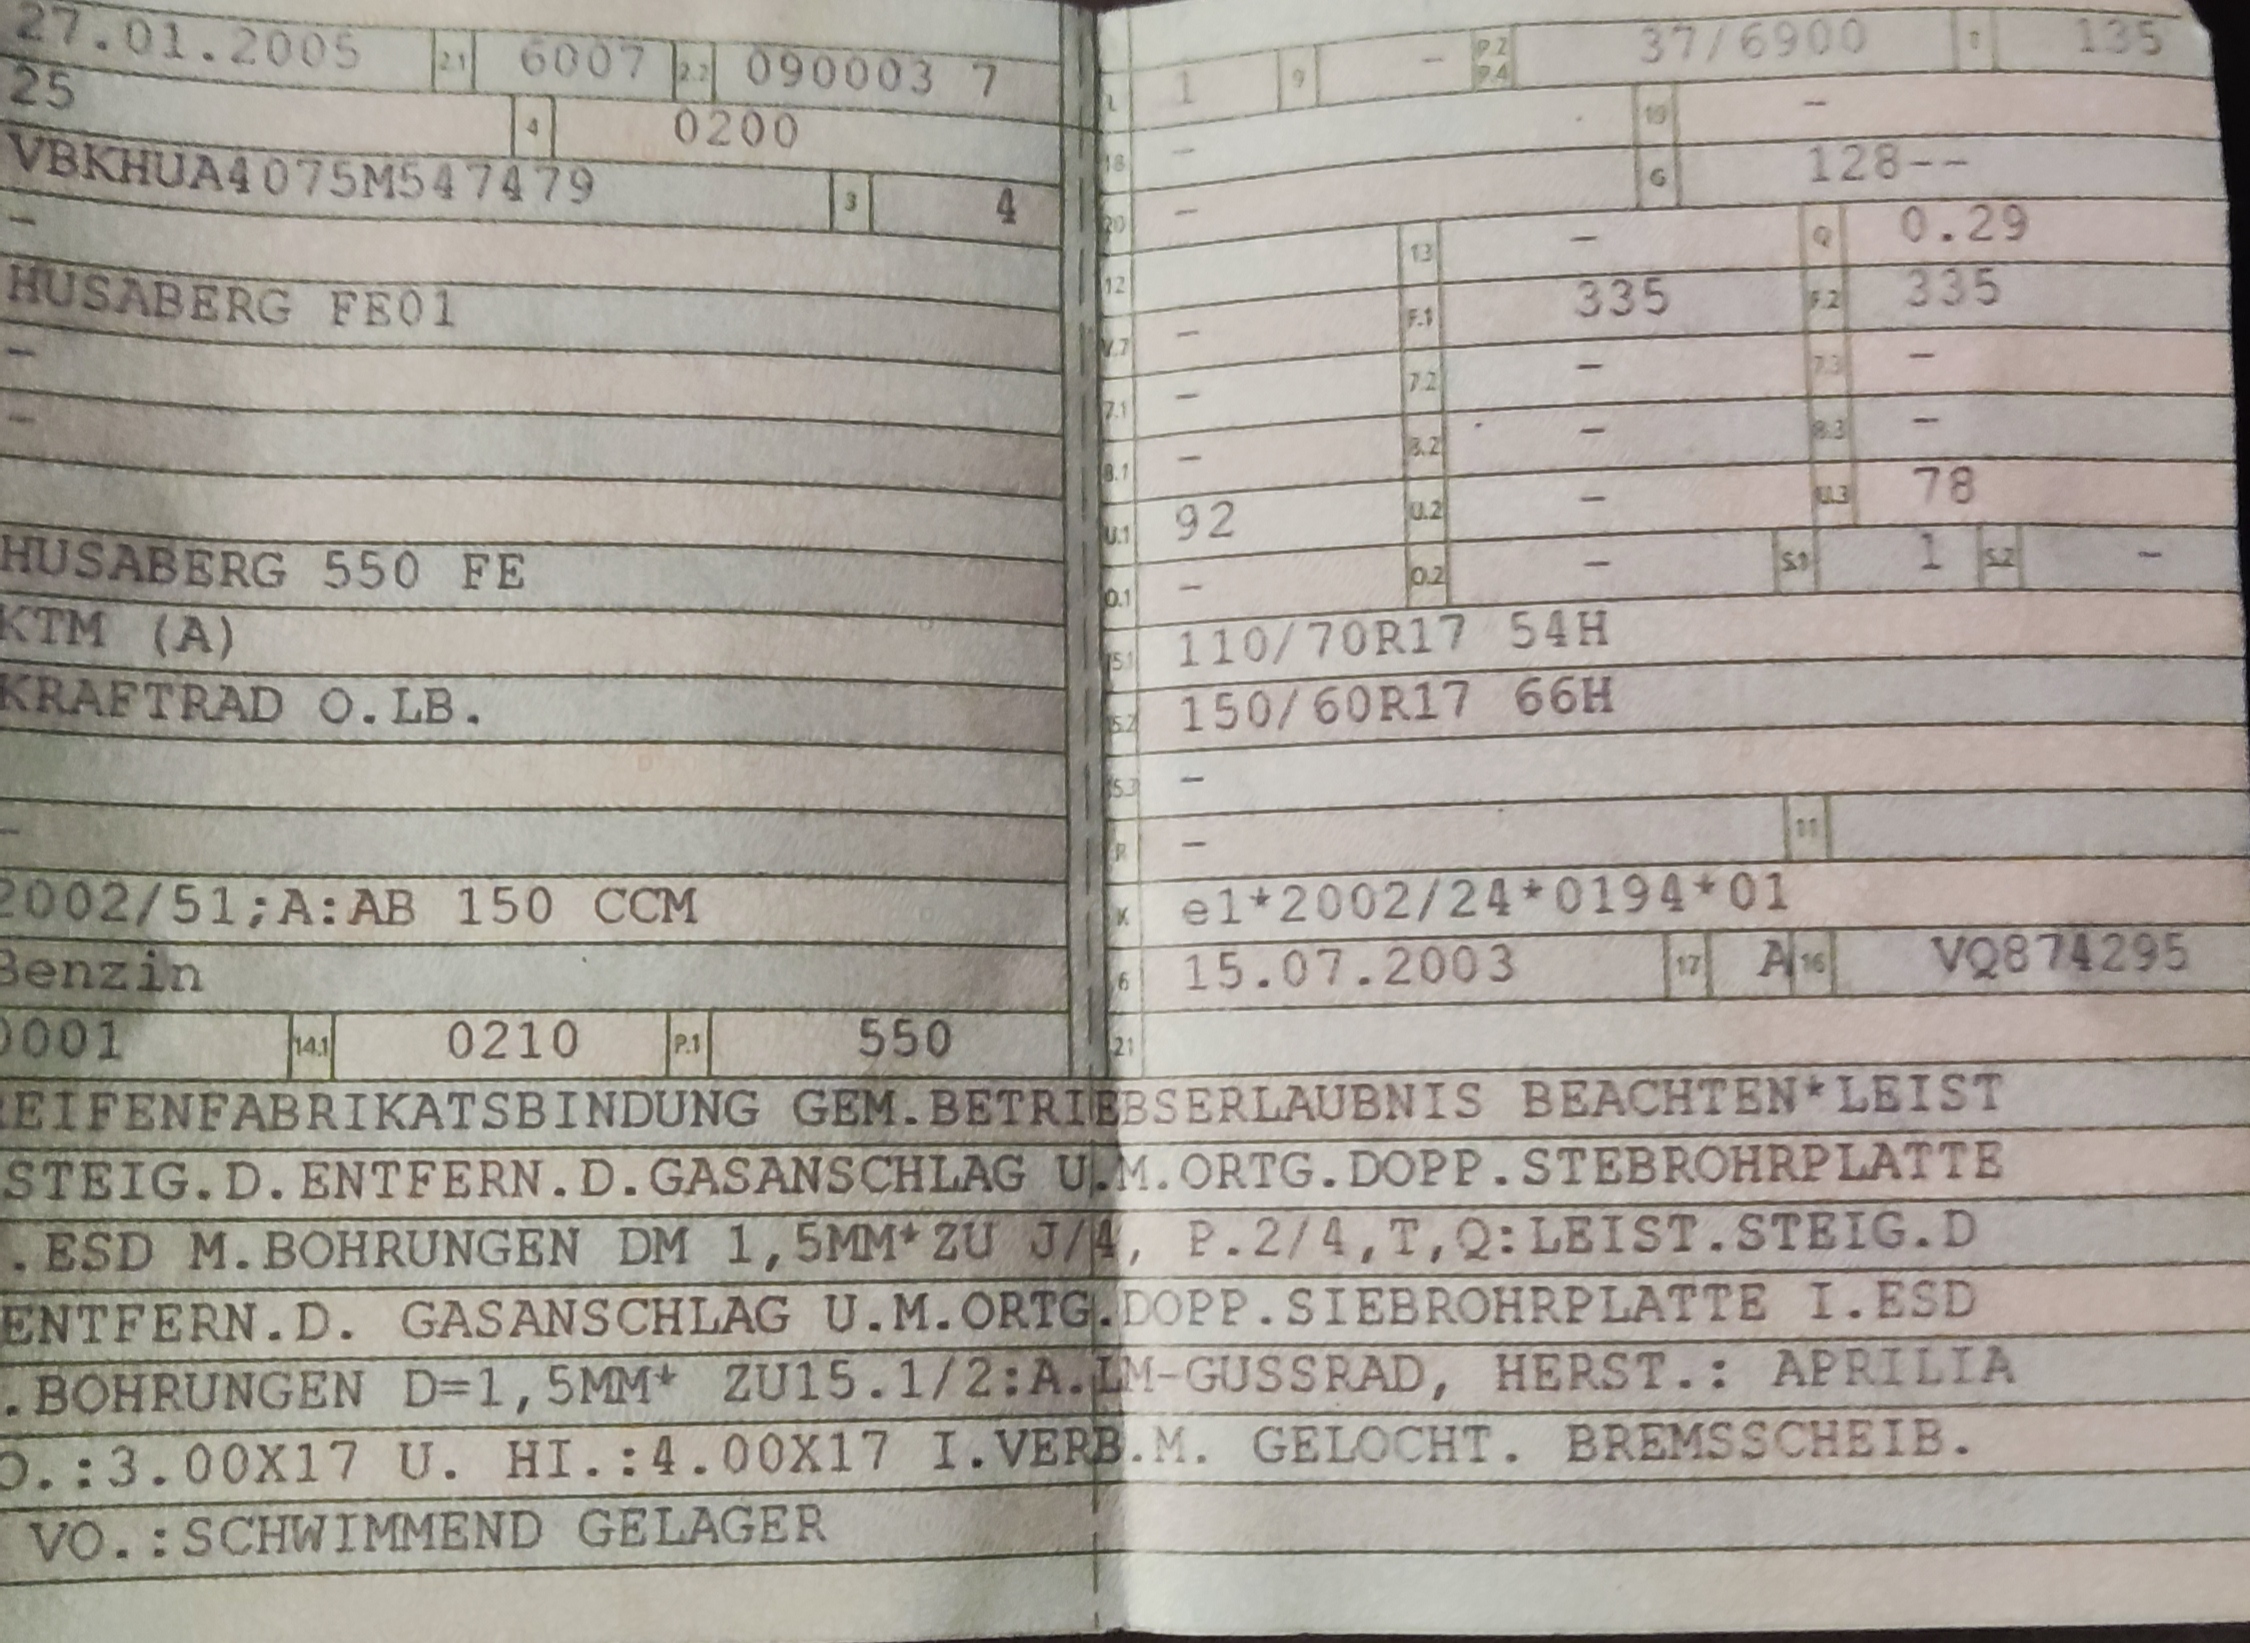 27.01.2005 2.1 6007 2.2 090003 7
25 4 0200
VBKHUA4075M547479 3 4
-
HUSABERG FE01
-
-
HUSABERG 550 FE
KTM (A)
KRAFTRAD O.LB.
-
2002/51;A:AB 150 CCM
Benzin
0001 14.1 0210 P.1 550
L 1 9 - P.2 P.4 37/6900 T 135
18 - 19 -
20 - G 128--
12 13 - Q 0.29
V.7 - F.1 335 F.2 335
7.1 - 7.2 - 7.3 -
8.1 - 8.2 - 8.3 -
U.1 92 U.2 - U.3 78
O.1 - O.2 - S.1 1 S.2 -
15.1 110/70R17 54H
15.2 150/60R17 66H
15.3 -
R - 11
K e1*2002/24*0194*01
6 15.07.2003 17 A 16 VQ874295
21
EIFENFABRIKATSBINDUNG GEM.BETRIEBSERLAUBNIS BEACHTEN*LEIST
STEIG.D.ENTFERN.D.GASANSCHLAG U.M.ORTG.DOPP.STEBROHRPLATTE
.ESD M.BOHRUNGEN DM 1,5MM*ZU J/4, P.2/4,T,Q:LEIST.STEIG.D
ENTFERN.D. GASANSCHLAG U.M.ORTG.DOPP.SIEBROHRPLATTE I.ESD
.BOHRUNGEN D=1,5MM* ZU15.1/2:A.LM-GUSSRAD, HERST.: APRILIA
O.:3.00X17 U. HI.:4.00X17 I.VERB.M. GELOCHT. BREMSSCHEIB.
VO.:SCHWIMMEND GELAGER